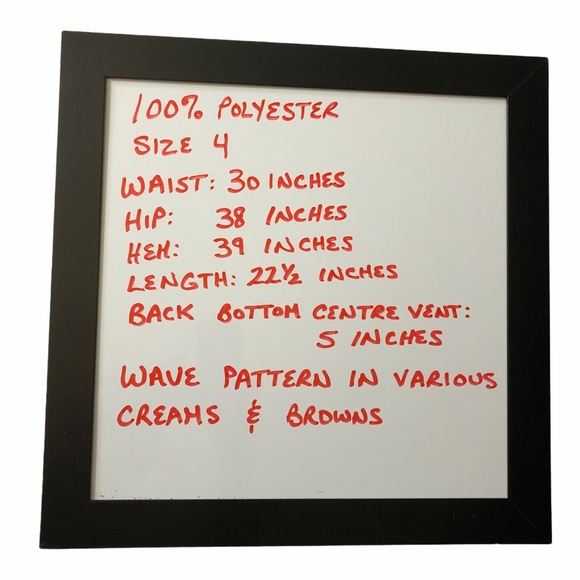 100% POLYESTER
SIZE 4
WAIST: 30 INCHES
HIP: 38 INCHES
HEM: 39 INCHES
LENGTH: 22½ INCHES
BACK BOTTOM CENTRE VENT:
5 INCHES
WAVE PATTERN IN VARIOUS
CREAMS & BROWNS